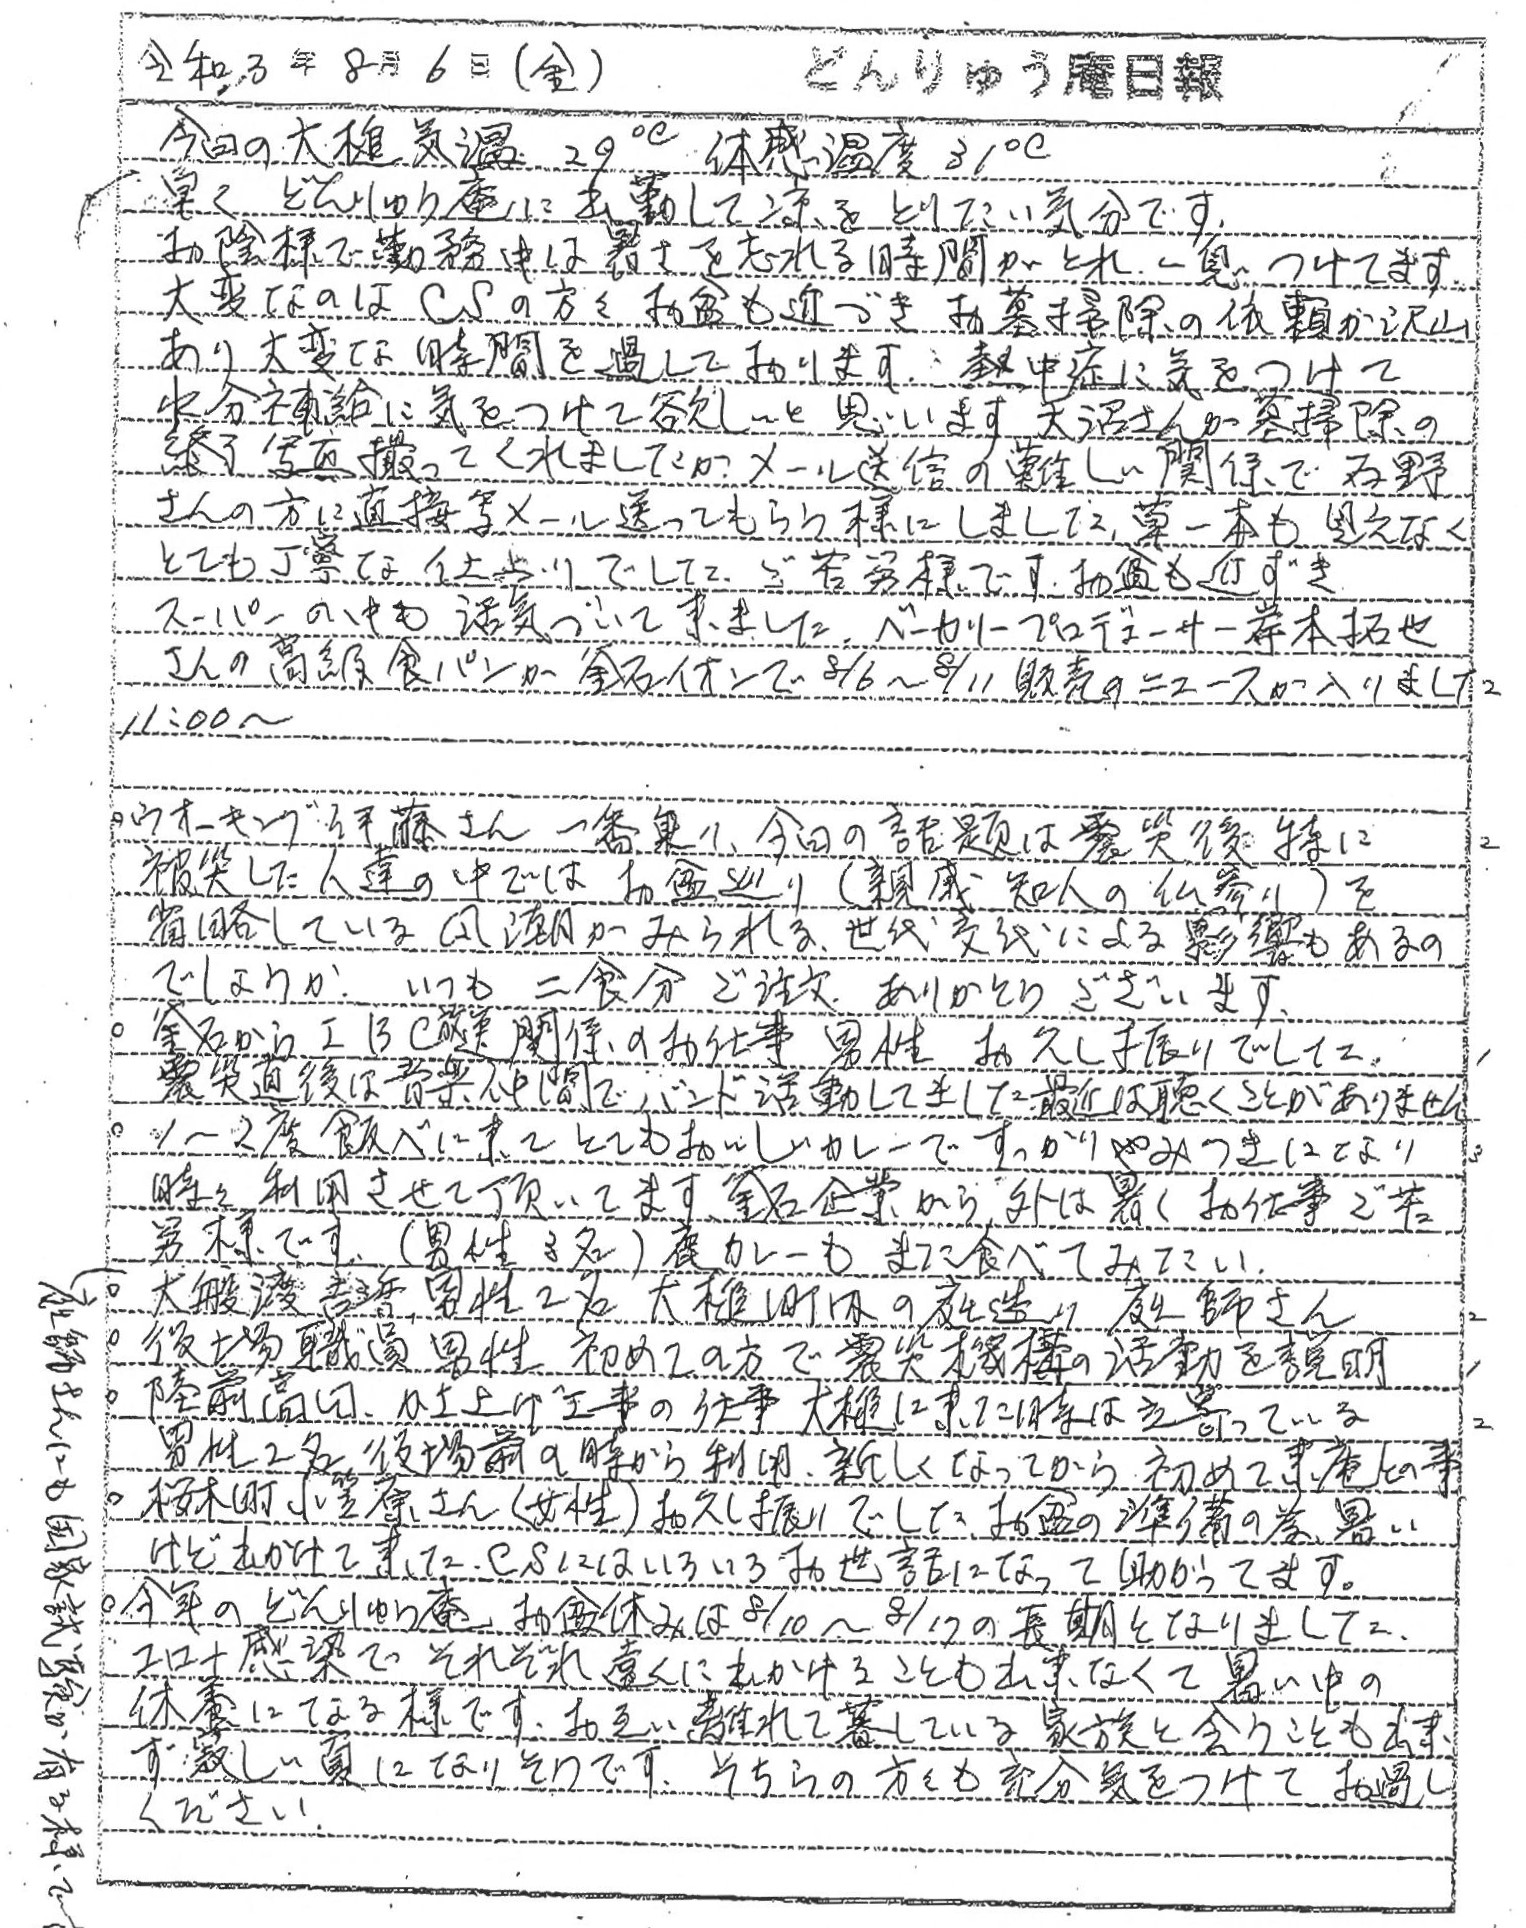 令和3年8月6日(金) どんりゅう庵日報
今日の大槌気温 29℃ 体感温度 31℃
早く どんりゅう庵に出勤して涼をとりたい気分です。
お陰様で勤務中は暑さを忘れる時間がとれ、一息つけてます。
大変なのはCSの方々 お盆も近づき お墓掃除の依頼が沢山
あり大変な時間を過しております。熱中症に気をつけて
水分補給に気をつけて欲しいと思います 大沼さんが墓掃除の
終了写真撮ってくれましたが メール送信の難しい関係で 石野
さんの方に直接写メール送ってもらう様にしました、草一本も見えなく
とても丁寧な仕上りでした。ご苦労様です。お盆も近ずき
スーパーの中も 活気づいて来ました。ベーカリープロデューサー岸本拓也
さんの高級食パンが 釜石イオンで 8/6〜8/11 販売のニュースが入りました
11:00〜
○ウオーキング伊藤さん 一番乗り、今日の話題は震災後 特に 2
被災した人達の中では お盆巡り(親戚 知人の仏参り)を
省略している風潮がみられる、世代交代による影響もあるの
でしょうか。 いつも 二食分 ご注文 ありがとう ございます。
○釜石から IBC 関係のお仕事 男性 お久し振りでした。 1
震災直後は音楽仲間でバンド活動してました 最近は聴くことがありません
○1〜2度 飯べに来て とてもおいしいカレーで すっかりやみつきになり 3
時々利用させて頂いてます 釜石企業から、外は暑くお仕事ご苦
労様です。(男性3名) 鹿カレーも また食べてみたい。
○大般渡 男性2名 大槌町内の 2
○役場職員 男性 初めての方で 震災機構の活動を説明 1
○陸前高田、かさ上げ工事の仕事 大槌に来た時は立寄っている 2
男性2名 役場前の時から利用、新しくなってから 初めて来庵との事
○桜木町 小笠原さん(女性)お久し振りでした お盆の準備の為、暑い 1
けど出かけて来た。CSにはいろいろお世話になって助かってます。
○今年の どんりゅう庵 お盆休みは 8/10〜8/17の長期となりました。
コロナ感染で それぞれ遠くに出かけることも出来なくて 暑い中の
休養になる様です。お互い離れて暮している家族と会うことも出来
ず寂しい夏になりそうです。そちらの方々も充分気をつけてお過し
ください。
師さんにも国家試験が有る様で